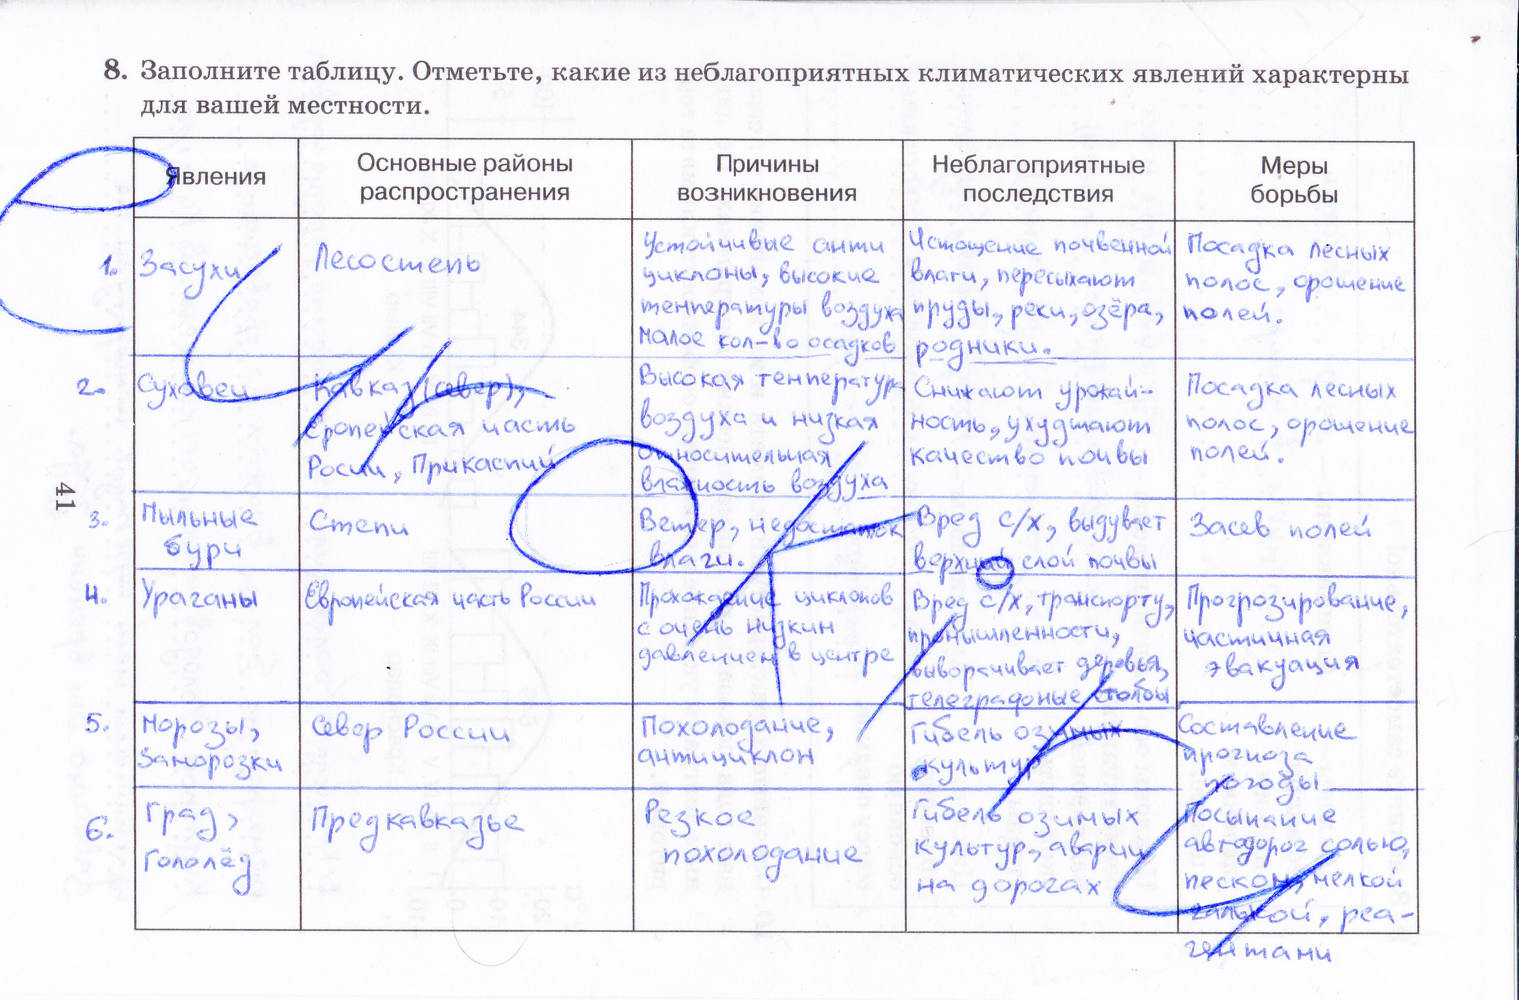 8. Заполните таблицу. Отметьте, какие из неблагоприятных климатических явлений характерны
для вашей местности.
Явления
Основные районы
распространения
Причины
возникновения
Неблагоприятные
последствия
Меры
борьбы
1. Засухи
Лесостепь
Устойчивые анти
циклоны, высокие
температуры воздуха
малое кол-во осадков
Истощение почвенной
влаги, пересыхают
пруды, реки, озёра,
родники.
Посадка лесных
полос, орошение
полей.
2. Суховеи
Кавказ (север),
Еропейская часть
Росии, Прикаспий
Высокая температура
воздуха и низкая
относительная
влажность воздуха
Снижают урожай-
ность, ухудшают
качество почвы
Посадка лесных
полос, орошение
полей.
3. Пыльные
бури
Степи
Ветер, недостаток
влаги.
Вред с/х, выдувает
верхний слой почвы
Засев полей
4. Ураганы
Европейская часть России
Прохождение циклонов
с очень низким
давлением в центре
Вред с/х, транспорту,
промышленности,
выворачивает деревья,
телеграфные столбы
Прогрозирование,
частичная
эвакуация
5. Морозы,
Заморозки
Север России
Похолодание,
антициклон
Гибель озимых
культур
Составление
прогноза
погоды
6. Град,
Гололёд
Предкавказье
Резкое
похолодание
Гибель озимых
культур, аварии
на дорогах
Посыпание
автодорог солью,
песком, мелкой
галькой, реа-
гентами
41